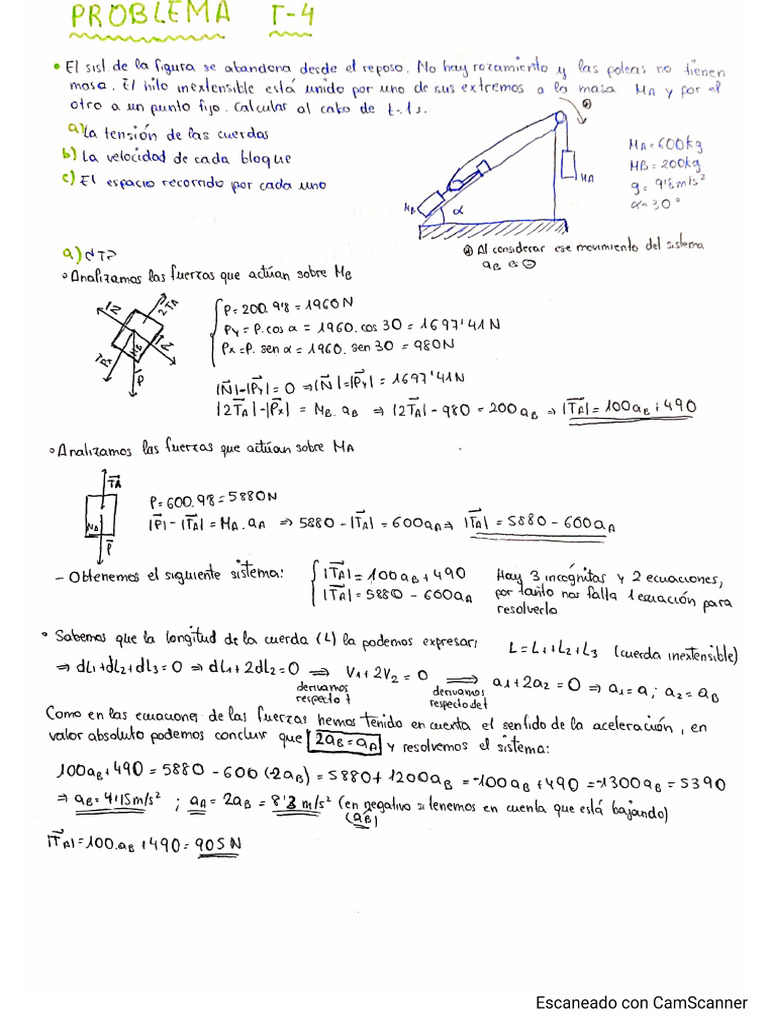 PROBLEMA T-4
• El sist. de la figura se abandona desde el reposo. No hay rozamiento y las poleas no tienen
masa. El hilo inextensible está unido por uno de sus extremos a la masa MA y por el
otro a un punto fijo. Calcular al cabo de t=1s.
a) La tensión de las cuerdas
b) La velocidad de cada bloque
c) El espacio recorrido por cada uno
MB
α
MA
MA=600kg
MB=200kg
g=9'8m/s²
α=30°
a) ¿T?
Al considerar ese movimiento del sistema
aB es ⊖
• Analizamos las fuerzas que actúan sobre MB
|N
2TA
Py
Px
MB
P
P=200.9'8=1960N
Py=P.cos α=1960.cos 30=1697'41N
Px=P.sen α=1960.sen 30=980N
|N|-|Py|=0 ⇒|N|=|Py|=1697'41N
|2TA|-|Px|=MB.aB ⇒ |2TA|-980=200aB ⇒ |TA|=100aB+490
• Analizamos las fuerzas que actúan sobre MA
TA
MA
P
P=600.98=5880N
|P|-|TA|=MA.aA ⇒ 5880-|TA|=600aA ⇒ |TA|=5880-600aA
- Obtenemos el siguiente sistema: {|TA|=100aB+490
|TA|=5880-600aA
Hay 3 incógnitas y 2 ecuaciones,
por tanto nos falla 1 ecuación para
resolverlo
• Sabemos que la longitud de la cuerda (L) la podemos expresar: L=L1+L2+L3 (cuerda inextensible)
⇒ dL1+dL2+dL3=0 ⇒ dL1+2dL2=0 ⇒ V1+2V2=0 ⇒ a1+2a2=0 ⇒ a1=a; a2=aB
derivamos
respecto t
derivamos
respecto de t
Como en las ecuaciones de las fuerzas hemos tenido en cuenta el sentido de la aceleración, en
valor absoluto podemos concluir que 2aB=aA y resolvemos el sistema:
100aB+490=5880-600(-2aB)=5880+1200aB=-100aB+490=-1300aB=5390
⇒ aB=4'15m/s² ; aA=2aB=8'3 m/s² (en negativo si tenemos en cuenta que está bajando)
(aB)
|TA|=100.aB+490=905N
Escaneado con CamScanner